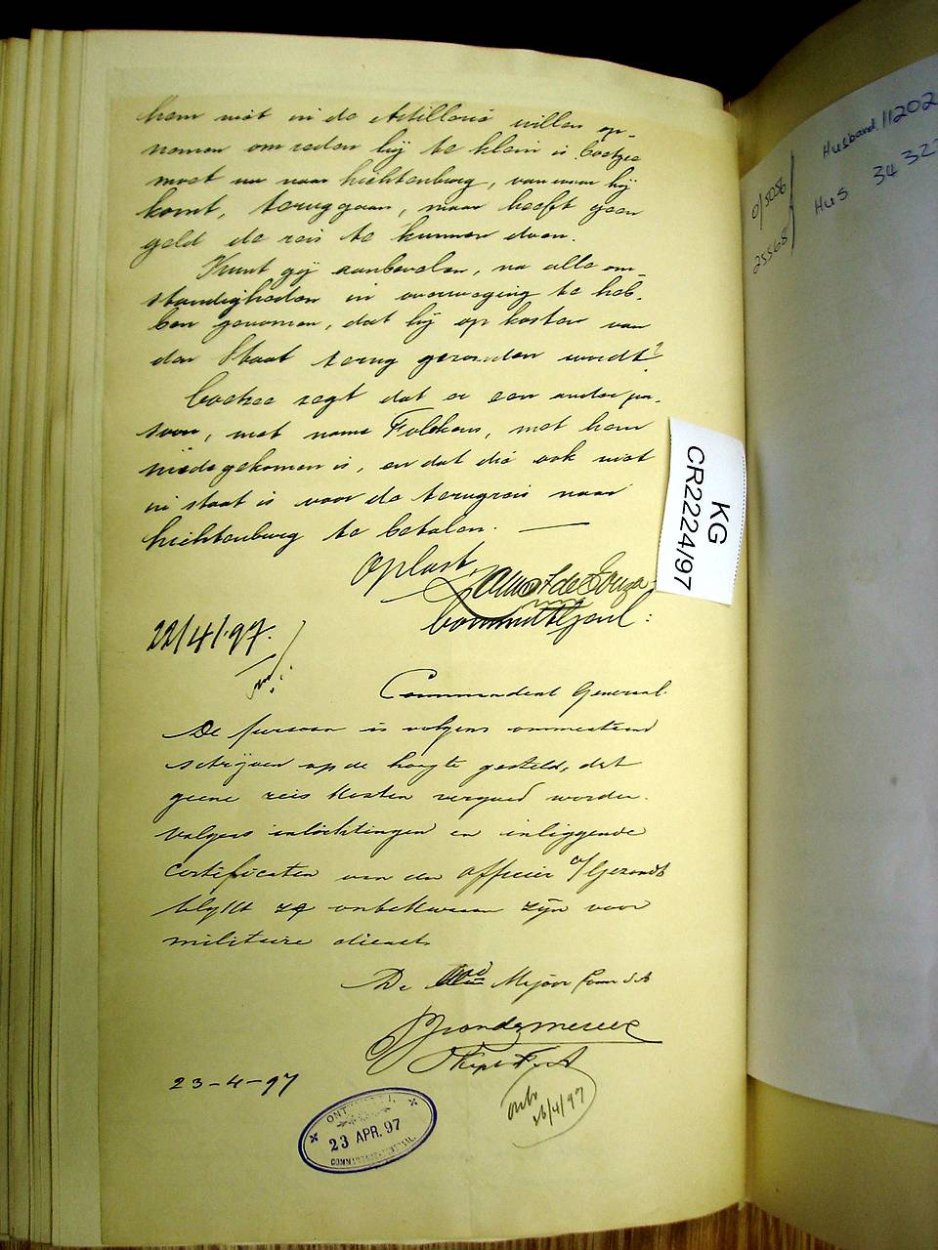 hem niet in de Artillerie willen op-
nemen om reden hij te klein is Coetzee
moet nu naar Lichtenburg, van waar hij
komt, teruggaan, maar heeft geen
geld de reis te kunnen doen.
Kunt gij aanbevelen, na alle om-
standigheden in overweging te heb-
ben genomen, dat hij op kosten van
den Staat terug gezonden wordt?
Coetzee zegt dat er een ander per-
soon, met name Folskens, met hem
medegekomen is, en dat die ook niet
in staat is voor de terugreis naar
Lichtenburg te betalen.
Op last,
de Souza
22/4/97.
Commandant Generaal
De persoon is volgens ommestaand
schrijven op de hoogte gesteld, dat
geene reis kosten vergoed worden.
Volgens inlichtingen en inliggende
certificaten van den Officier v/Gezondh
blykt ze onbekwaam zijn voor
militaire dienst.
De Majoor
23-4-97
ONT
23 APR. 97
26/4/97
KG
CR2224/97
Husband 11202
0/5056
Hus 34 32
25568